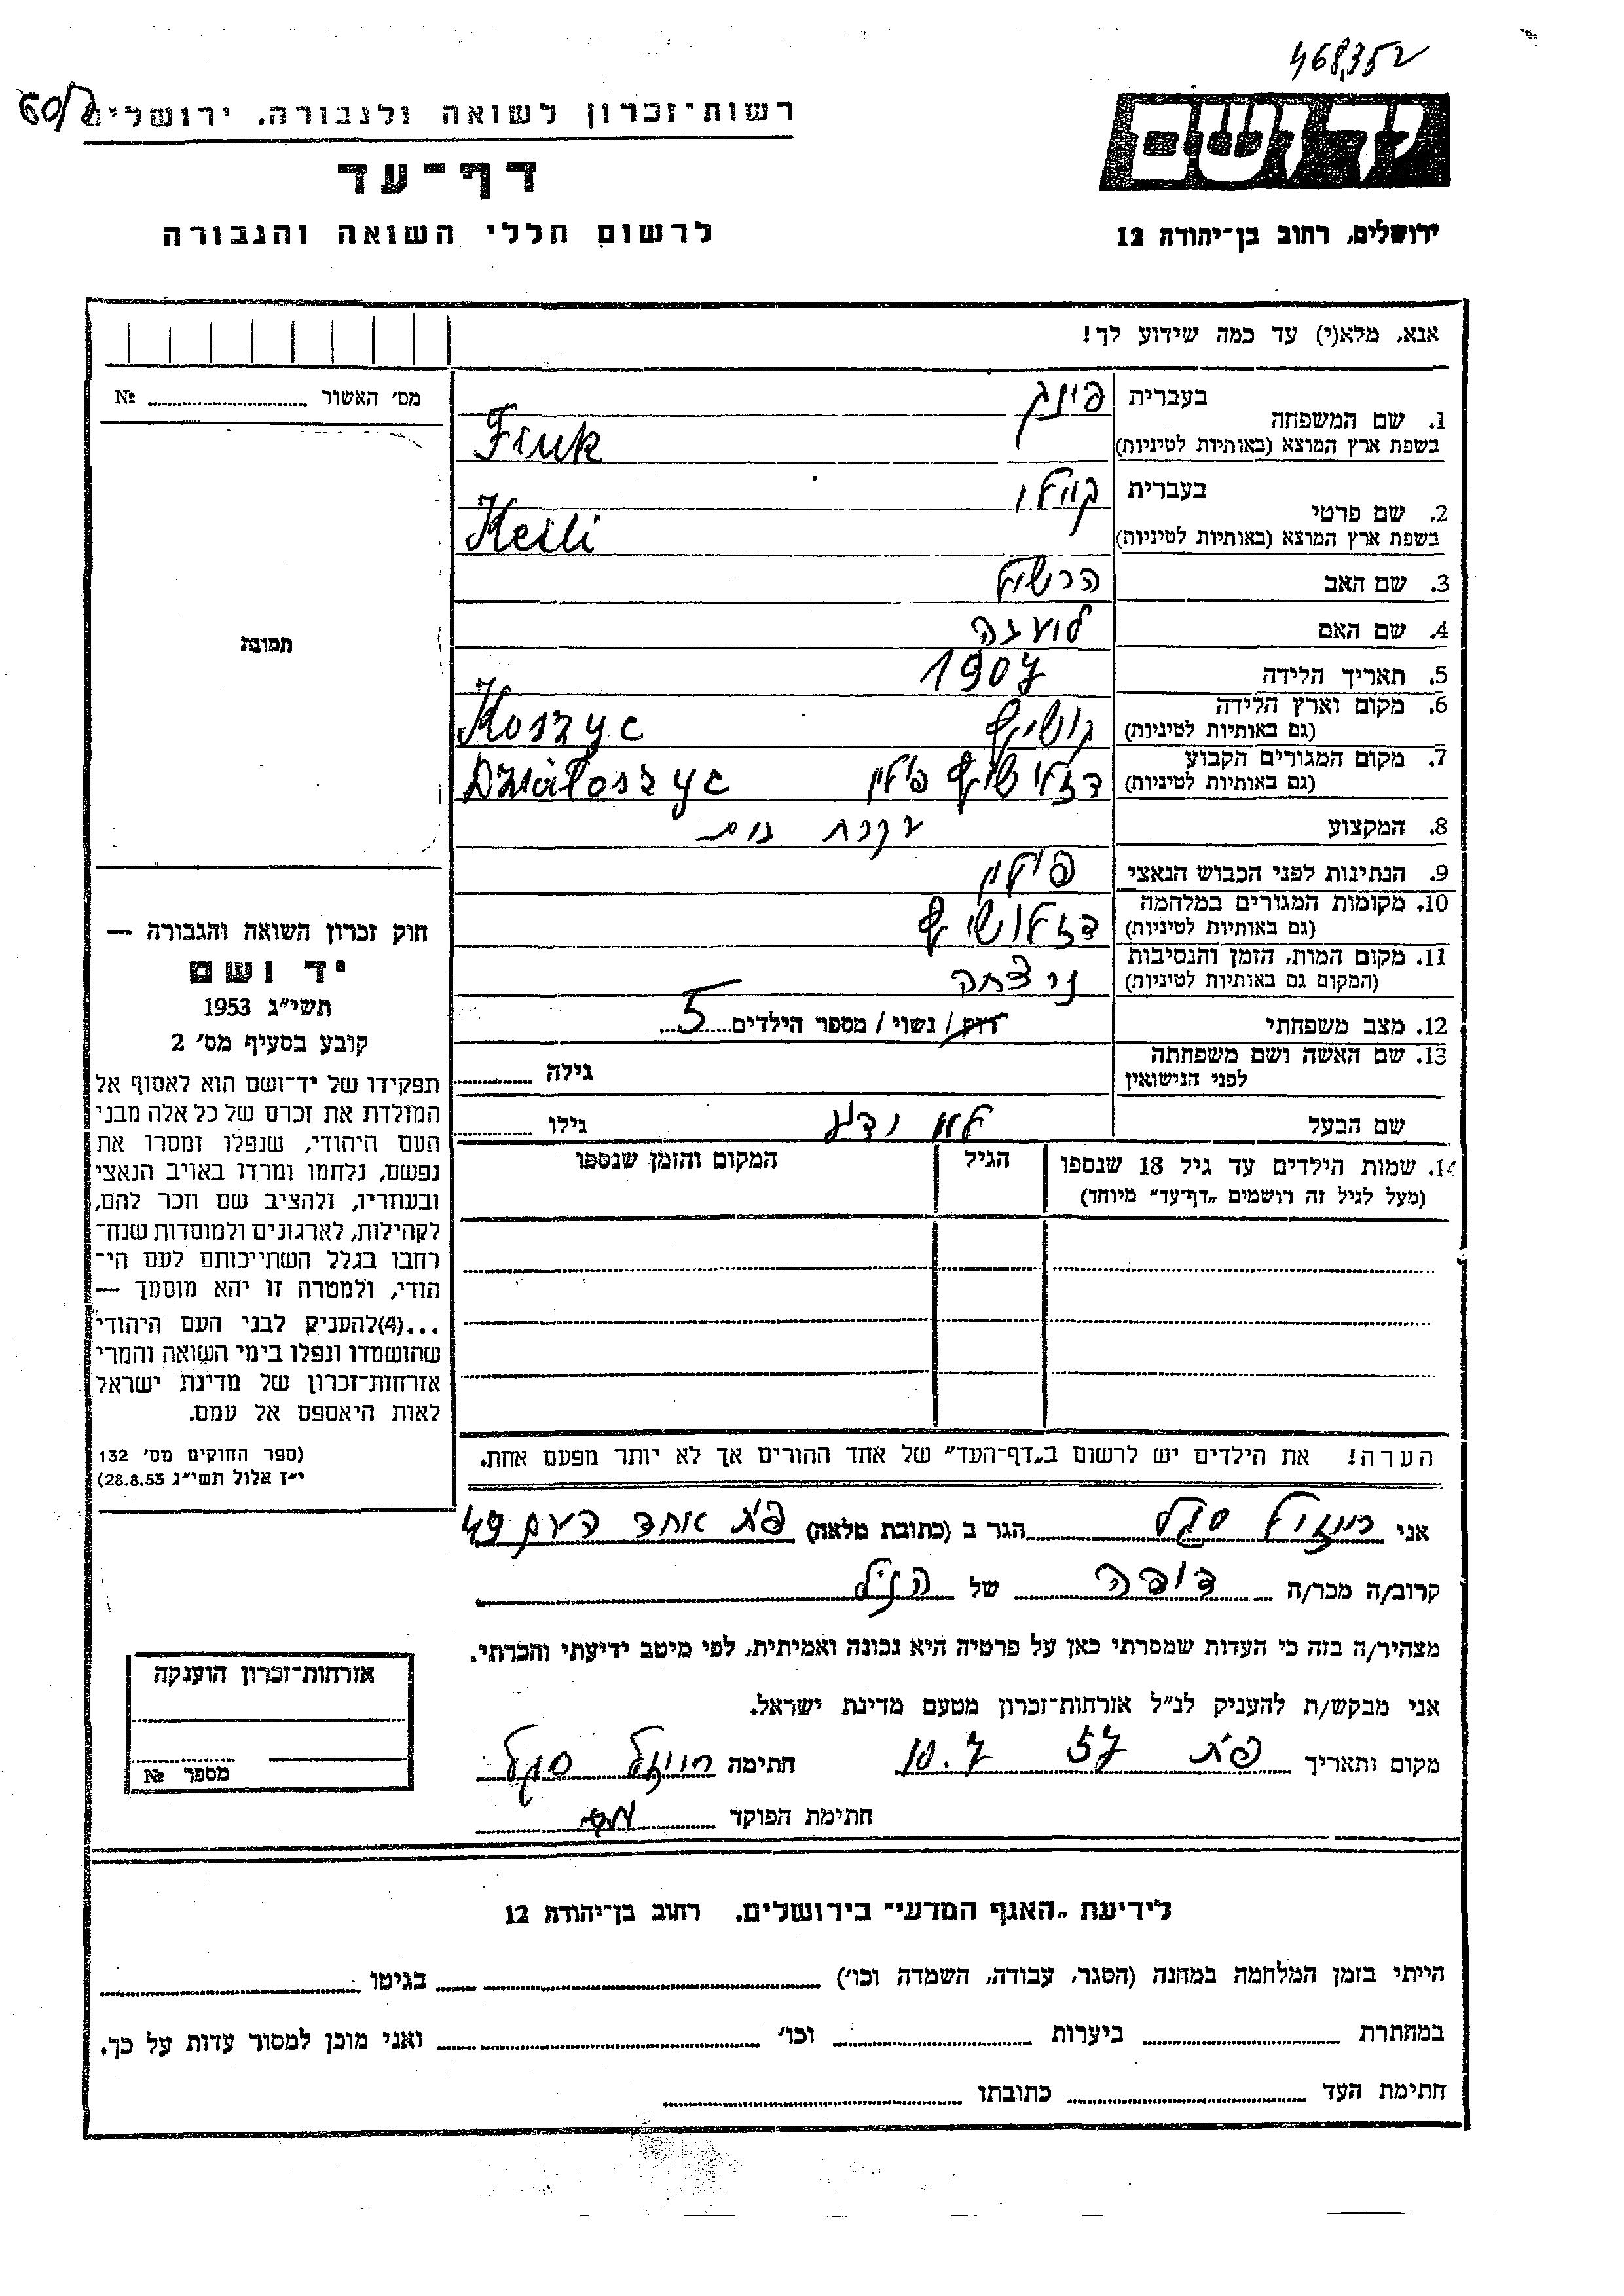 468352
60/2
רשות־זכרון לשואה ולגבורה. ירושלים
דף־עד
לרשום חללי השואה והגבורה
יד ושם
ירושלים, רחוב בן־יהודה 12
אנא, מלא(י) עד כמה שידוע לך!
מס׳ האשור № 
תמונה
1. שם המשפחה
בעברית פינק
בשפת ארץ המוצא (באותיות לטיניות) Fiuk
2. שם פרטי
בעברית
בשפת ארץ המוצא (באותיות לטיניות)
3. שם האב הרשיל
4. שם האם
5. תאריך הלידה 1907
6. מקום וארץ הלידה
(גם באותיות לטיניות) Koszyc
7. מקום המגורים הקבוע
(גם באותיות לטיניות) פולין Działoszyc
8. המקצוע עקרת בית
9. הנתינות לפני הכבוש הנאצי פולין
10. מקומות המגורים במלחמה
(גם באותיות לטיניות) דזלושיץ
11. מקום המות, הזמן והנסיבות
(המקום גם באותיות לטיניות) נרצחה
12. מצב משפחתי רווק / נשוי / מספר הילדים 5
13. שם האשה ושם משפחתה
לפני הנישואין
גילה
שם הבעל לא ידוע גילו
14. שמות הילדים עד גיל 18 שנספו
(מעל לגיל זה רושמים „דף־עד” מיוחד)
הגיל
המקום והזמן שנספו
הערה! את הילדים יש לרשום ב„דף־העד” של אחד ההורים אך לא יותר מפעם אחת.
חוק זכרון השואה והגבורה —
יד ושם
תשי״ג 1953
קובע בסעיף מס׳ 2
תפקידו של יד־ושם הוא לאסוף אל
המולדת את זכרם של כל אלה מבני
העם היהודי, שנפלו ומסרו את
נפשם, נלחמו ומרדו באויב הנאצי
ובעוזריו, ולהציב שם וזכר להם,
לקהילות, לארגונים ולמוסדות שנח־
רבו בגלל השתייכותם לעם הי־
הודי, ולמטרה זו יהא מוסמך —
...(4) להעניק לבני העם היהודי
שהושמדו ונפלו בימי השואה והמרי
אזרחות־זכרון של מדינת ישראל
לאות היאספם אל עמם.
(ספר החוקים מס׳ 132
י״ז אלול תשי״ג 28.8.53)
אני סגל הגר ב (כתובת מלאה) פ״ת אחד העם 49
קרוב/ה מכר/ה דודה של הנ״ל
מצהיר/ה בזה כי העדות שמסרתי כאן על פרטיה היא נכונה ואמיתית, לפי מיטב ידיעתי והכרתי.
אני מבקש/ת להעניק לנ״ל אזרחות־זכרון מטעם מדינת ישראל.
מקום ותאריך פ״ת 57 10.7 חתימה סגל
חתימת הפוקד
אזרחות־זכרון הוענקה
מספר №
לידיעת „האגף המדעי” בירושלים. רחוב בן־יהודה 12
הייתי בזמן המלחמה במחנה (הסגר, עבודה, השמדה וכו׳) בגיטו
במחתרת ביערות וכו׳ ואני מוכן למסור עדות על כך.
חתימת העד כתובתו